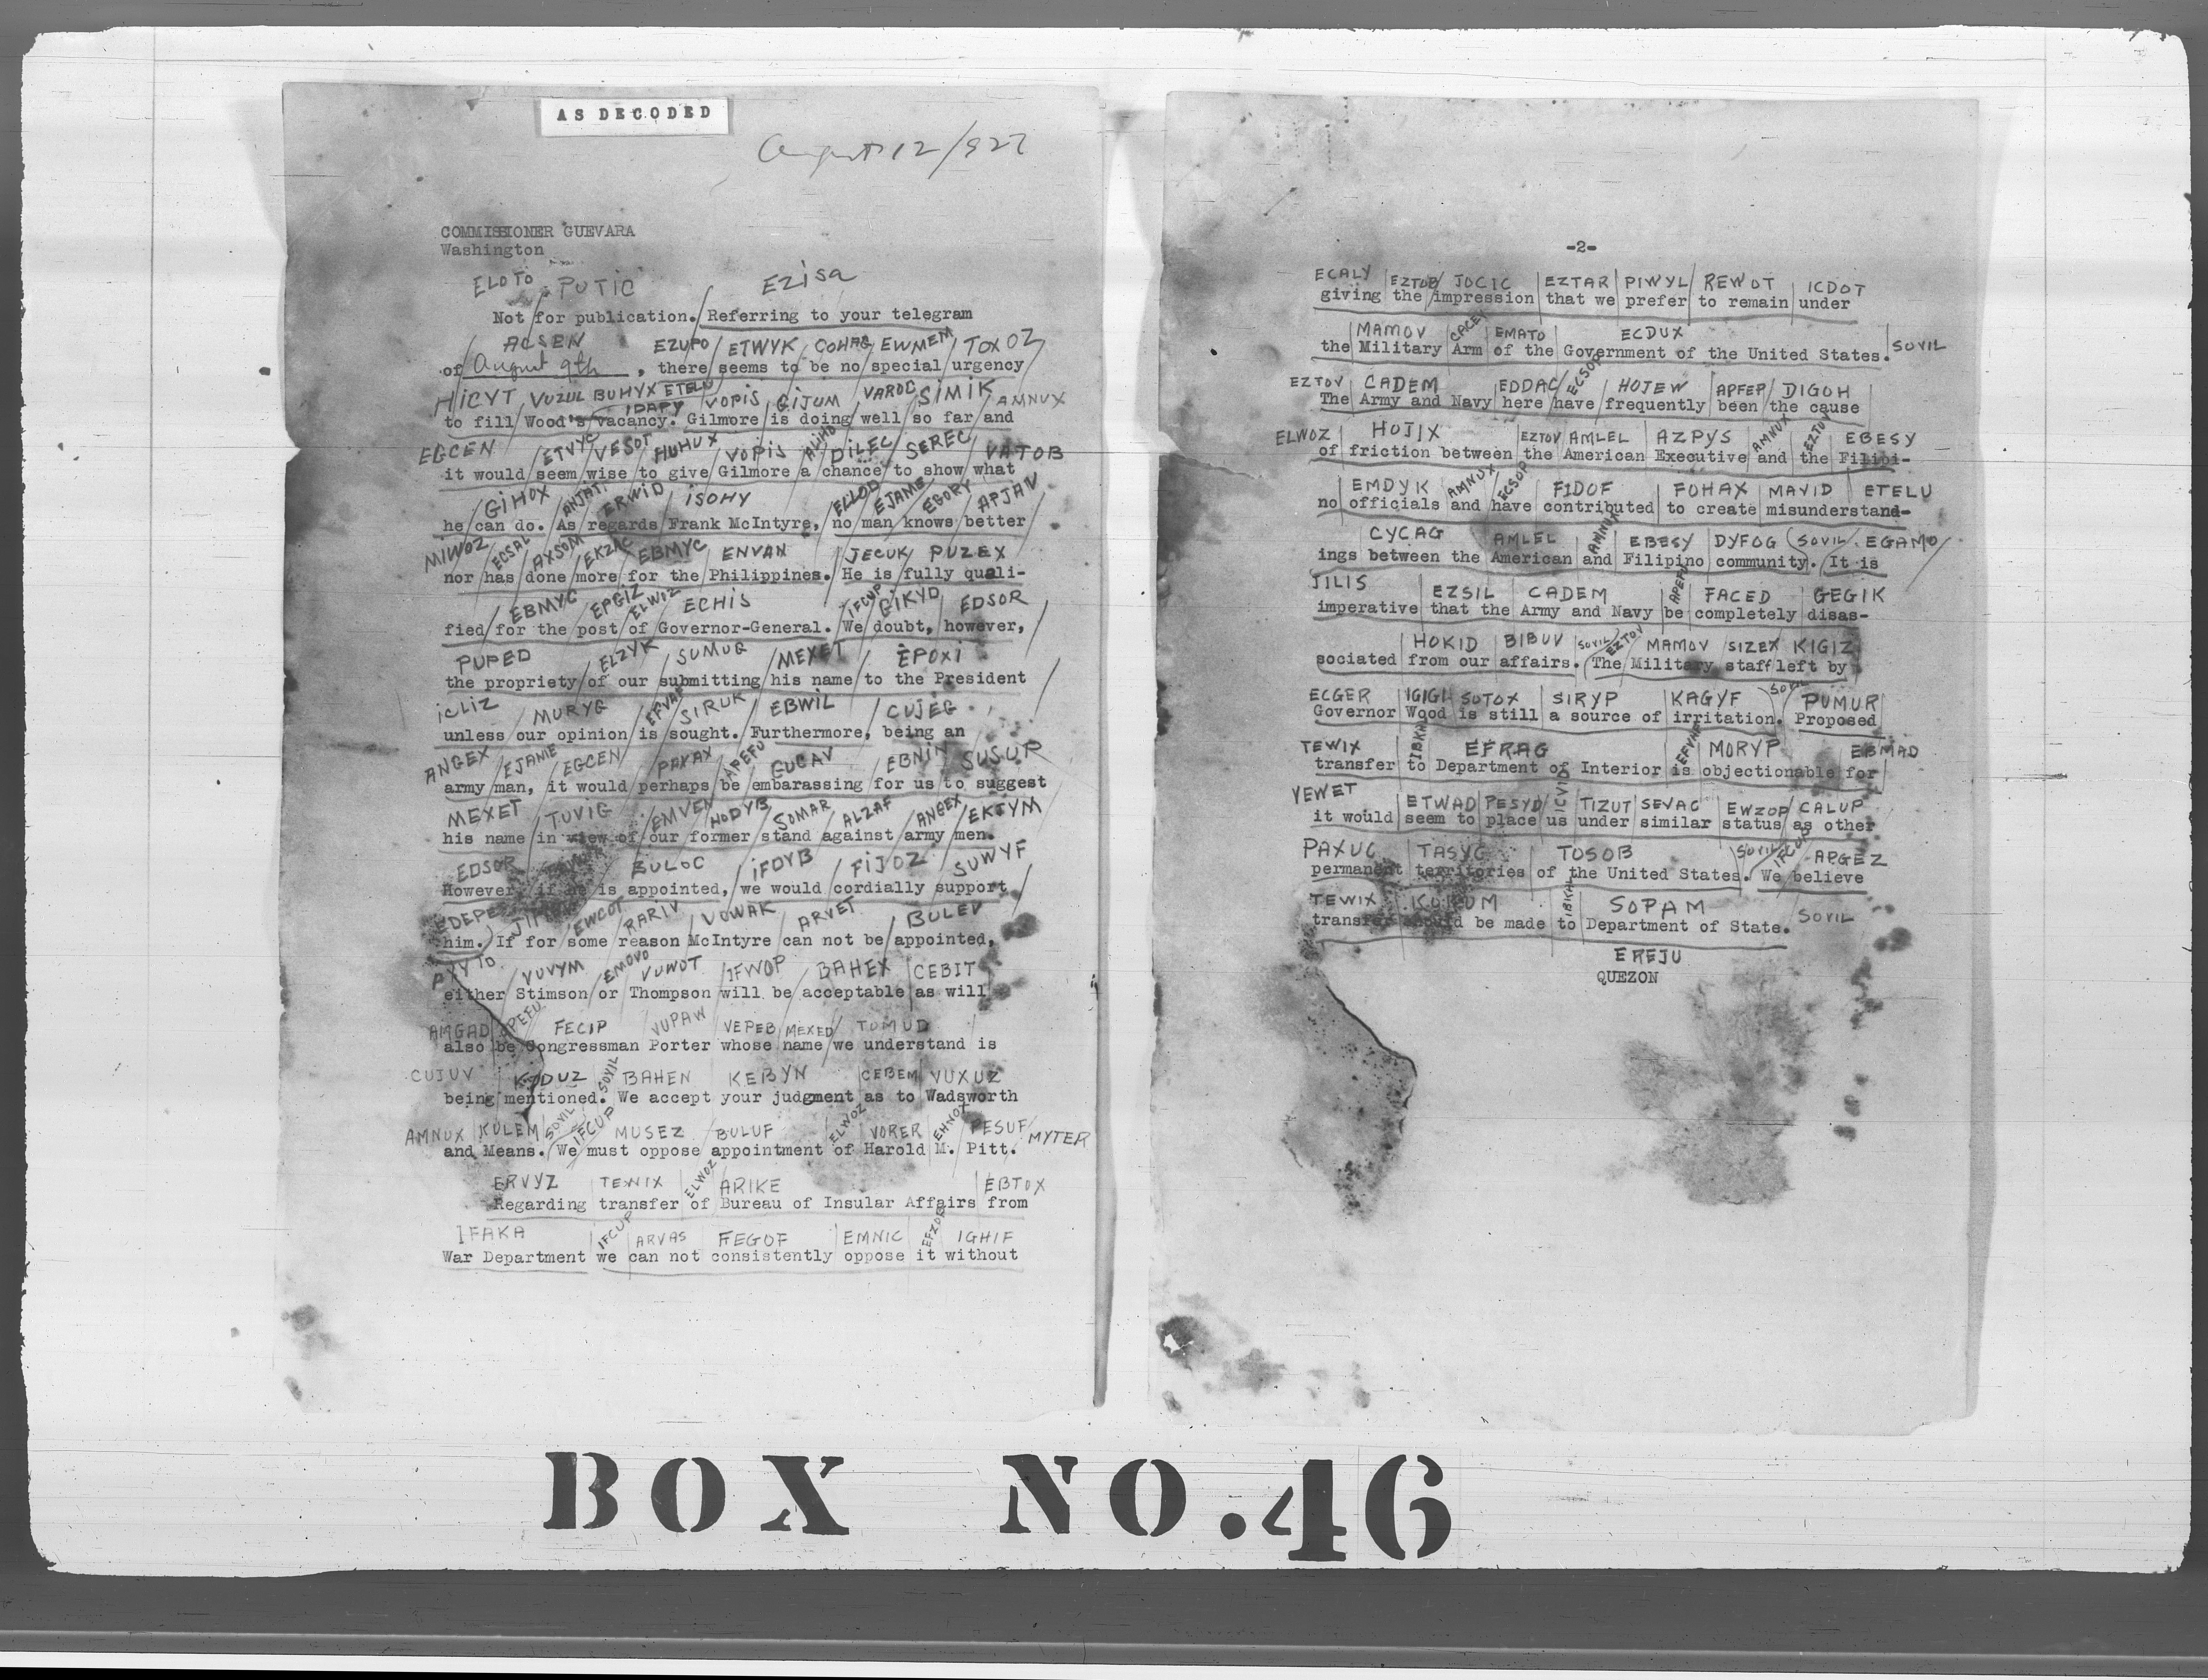 AS DECODED
August 12/927
COMMISSIONER GUEVARA
Washington
ELOTO PUTIC EZISA
Not for publication. Referring to your telegram
ACSEN EZUPO ETWYK COHAG EWMEM TOXOZ
of August 9th, there seems to be no special urgency
HICYT VUZUL BUHYX ETELU IDAPY VOPIS GIJUM VAROC SIMIK AMNUX
to fill Wood's vacancy. Gilmore is doing well so far and
EGCEN ETVYC VESOT HUHUX VOPIS DILEC SEREC VATOB
it would seem wise to give Gilmore a chance to show what
GIHOX ANJATI ERWID ISOHY ELLOD EJAMB EGORY APJAV
he can do. As regards Frank McIntyre, no man knows better
MIWOZ ECSAL AXSOM EKZAC EBMYC ENVAN JECUK PUZEX
nor has done more for the Philippines. He is fully quali-
EBMYC EPGIZ ELWIZ ECHIS IFCUP GIKYD EDSOR
fied for the post of Governor-General. We doubt, however,
PUPED ELZYK SUMUG MEXET EPOXI
the propriety of our submitting his name to the President
ICLIZ MURYG EFVAH SIRUK EBWIL CUJEG
unless our opinion is sought. Furthermore, being an
ANGEX EJANIE EGCEN PAXAX APEFU GUCAV EBNIN SUSUR
army man, it would perhaps be embarassing for us to suggest
MEXET TUVIG EMVEN HODYB SOMAR ALZAF ANGEX EKTYM
his name in view of our former stand against army men.
EDSOR BULOC IFDYB FIJOZ SUWYF
However, if he is appointed, we would cordially support
EDEPE EWCOT RARIV VOWAK ARVET BULEV
him. If for some reason McIntyre can not be appointed,
PXYTO VUVYM EMOVO VUWOT IFWOP BAHEX CEBIT
either Stimson or Thompson will be acceptable as will
AMGAD APEFU FECIP VUPAW VEPEB MEXED TOMUD
also be Congressman Porter whose name we understand is
CUJUV KODUZ SOVIL BAHEN KEBYN CEBEM VUXUZ
being mentioned. We accept your judgment as to Wadsworth
AMNUX KULEM SOVIL IFCUP MUSEZ BULUF ELWOZ VORER EHNOX PESUF MYTER
and Means. We must oppose appointment of Harold M. Pitt.
ERVYZ TEWIX ELWOZ ARIKE EBTOX
Regarding transfer of Bureau of Insular Affairs from
IFAKA IFCUP ARVAS FEGOF EMNIC EFXDE IGHIF
War Department we can not consistently oppose it without
-2-
ECALY EZTOB JOCIC EZTAR PIWYL REWOT ICDOT
giving the impression that we prefer to remain under
MAMOV CACEY EMATO ECDUX SOVIL
the Military Arm of the Government of the United States.
EZTOV CADEM EDDAC ECSOP HOJEW APFEP DIGOH
The Army and Navy here have frequently been the cause
ELWOZ HOJIX EZTOV AMLEL AZPYS AMNUX EZTOV EBESY
of friction between the American Executive and the Filipi-
EMDYK AMNUX ECSOP FIDOF FOHAX MAVID ETELU
no officials and have contributed to create misunderstand-
CYCAG AMLEL AMNUX EBESY DYFOG SOVIL EGAMO
ings between the American and Filipino community. It is
JILIS EZSIL CADEM APEFU FACED GEGIK
imperative that the Army and Navy be completely disas-
HOKID BIBUV SOVIL EZTOV MAMOV SIZEX KIGIZ
sociated from our affairs. The Military staff left by
ECGER IGIGI SUTOX SIRYP KAGYF SOVIL PUMUR
Governor Wood is still a source of irritation. Proposed
TEWIX IBKAL EFRAG EFVAH MORYP EBMAD
transfer to Department of Interior is objectionable for
YEWET ETWAD PESYD ICVID TIZUT SEVAC EWZOP CALUP
it would seem to place us under similar status as other
PAXUC TASYG TOSOB SOVIL IFCUP APGEZ
permanent territories of the United States. We believe
TEWIX KUKUM IBKAL SOPAM SOVIL
transfer should be made to Department of State.
EREJU
QUEZON
BOX NO. 46